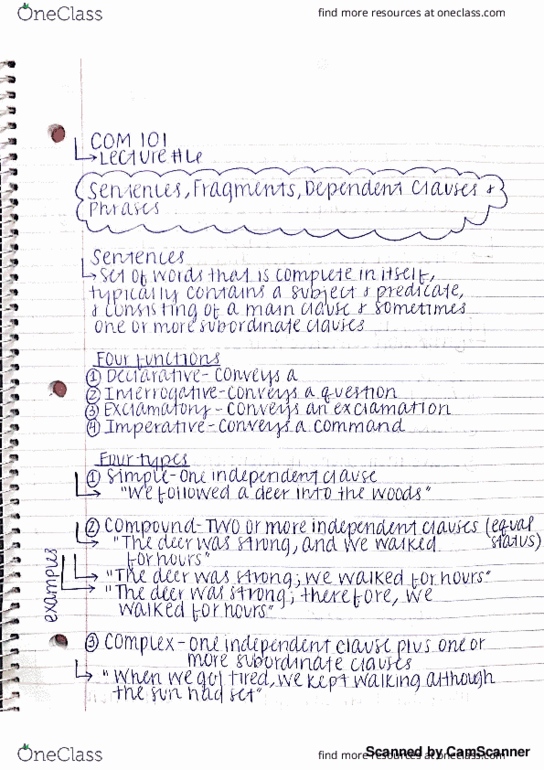 OneClass
find more resources at oneclass.com
COM 101
Lecture #6
Sentences, Fragments, Dependent Clauses &
Phrases
Sentences
Set of words that is complete in itself,
typically contains a subject & predicate,
& consisting of a main clause & sometimes
one or more subordinate clauses
Four functions
① Declarative - Conveys a
② Interrogative - Conveys a question
③ Exclamatory - Conveys an exclamation
④ Imperative - Conveys a command
Four types
① Simple - one independent clause
"We followed a deer into the woods"
② Compound - TWO or more independent clauses (equal
status)
"The deer was strong, and we walked
for hours"
examples
"The deer was strong; we walked for hours"
"The deer was strong; therefore, we
walked for hours"
③ Complex - one independent clause plus one or
more subordinate clauses
"When we got tired, we kept walking although
the sun had set"
OneClass
find more resources at oneclass.com
Scanned by CamScanner